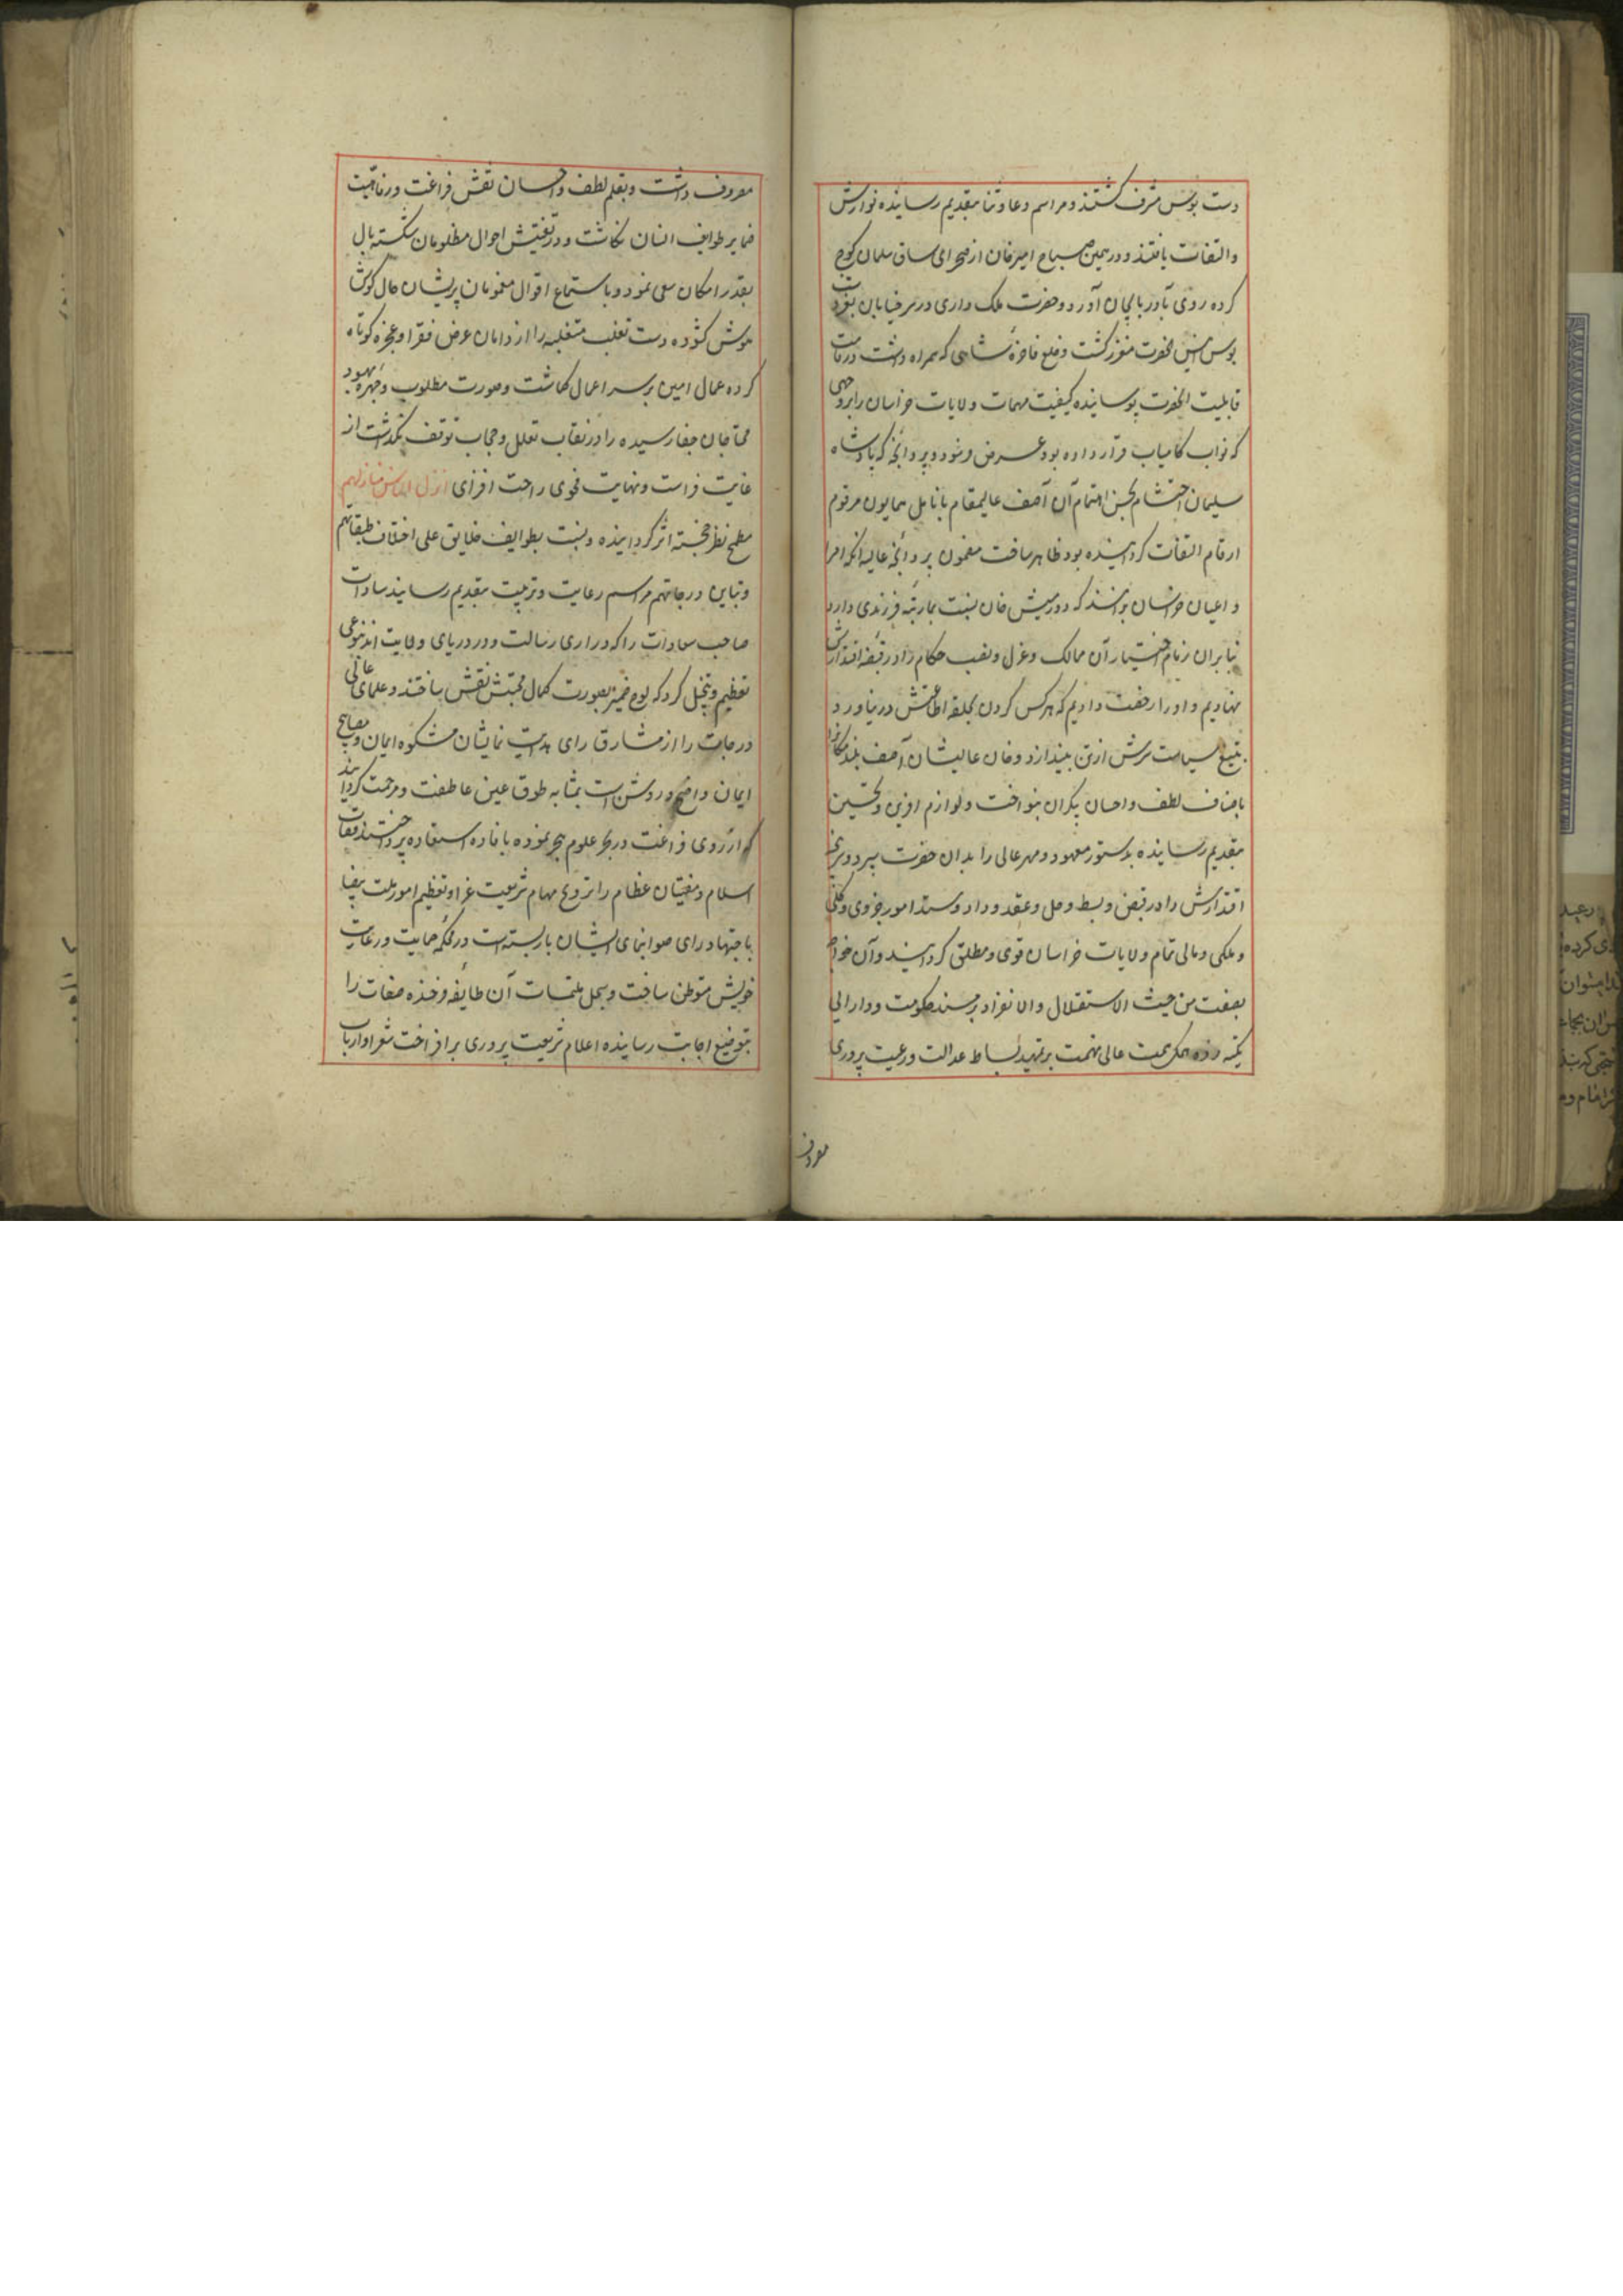 دست بوس مشرف گشتند و مراسم دعا و ثنا بتقدیم رسانیده نوازش
والتفات یافتند و در همین صباح امیرخان از صحرای ساق سلمان کوچ
کرده روی بآذربایجان آورد و حضرت ملک داری در سر خیابان بعز
بوس آنحضرت معزز گشت و خلع فاخرهٔ شاهی که همراه داشت در قامت
قابلیت آنحضرت پوسانیده کیفیت مهمات ولایات خراسان را بروجهی
که نواب کامیاب قرار داده بود عرض نمود و پروانجهٔ که پادشاه
سلیمان احتشام بحسن اهتمام آن آصف عالیمقام بانامل همایون مرقوم
ارقام التفات گردانیده بود ظاهر ساخت مضمون پروانجهٔ عالیه آنکه امرا
و اعیان خراسان بدانند که دورمیش خان نسبت بما رتبهٔ فرزندی دارد
بنابران زمام اختیار آن ممالک و عزل و نصب حکام را در قبضهٔ اقتدارش
نهادیم و او را رخصت دادیم که هر کس گردن بحلقهٔ اطاعتش در نیاورد
بتیغ سیاست سرش از تن بیندازد و خان عالیشان آصف بلند مکانرا
باصناف لطف و احسان بیکران بنواخت و لوازم آفرین و تحسین
بتقدیم رسانیده بدستور معهود و مهر عالی را بدان حضرت سپرد و
اقتدارش را در قبض و بسط و حل و عقد و داد و ستد امور جزوی و کلی
و ملکی و مالی تمام ولایات خراسان قوی و مطلق گردانید و آن
بصفت من حیث الاستقلال والانفراد بر مسند حکومت و دارائی
تکیه زده همگی همت عالی نهمت بر تمهید بساط عدالت و رعیت پروری
معروف
معروف داشت و بقلم لطف و احسان نقش فراغت و رفاهیت
ضمایر طوایف انسان نگاشت و در تفتیش احوال مظلومان شکسته بال
بقدر امکان سعی نمود و باستماع اقوال مغمومان پریشان حال گوش
هوش گشوده دست تغلب متغلبه را از دامان عرض فقرا و عجزه کوتاه
کرده عمال امین بر سر اعمال گماشت و صورت مطلوب و چهره بهبود
محتاجان جفا رسیده را در نقاب تعلل و حجاب توقف نگذاشت از
غایت فراست و نهایت فحوی راحت افزای انزل الناس منازلهم
مطمح نظر خجسته اثر گردانیده و نسبت بطوایف خلایق علی اختلاف طبقاتهم
وتباین درجاتهم مراسم رعایت و تربیت بتقدیم رسانید سادات
صاحب سعادات را که دراری رسالت و در دریای ولایت اند بنوعی
تعظیم و تبجیل کرد که لوح ضمیر بصورت کمال محبتش نقش ساختند و علمای عالی
درجات را از مشارق رای هدایت نمایشان مشکوه ایمان و مصابیح
ایمان واضح و روشن است بمثابه طوق عین عاطفت و مرحمت گردانید
که از روی فراغت در بحر علوم تبحر نموده بافاده استفاده پرداختند قضات
اسلام و مفتیان عظام را ترویج مهام شریعت غرا و تعظیم امور ملت بیضا
باجتهاد رای صوابنمای ایشان باز بسته است در کنف حمایت و رعایت
خویش متوطن ساخت و سجل ملتمسات آن طایفهٔ فرخنده صفات را
بتوقیع اجابت رسانیده اعلام شریعت پروری برافراخت شعرا و ارباب